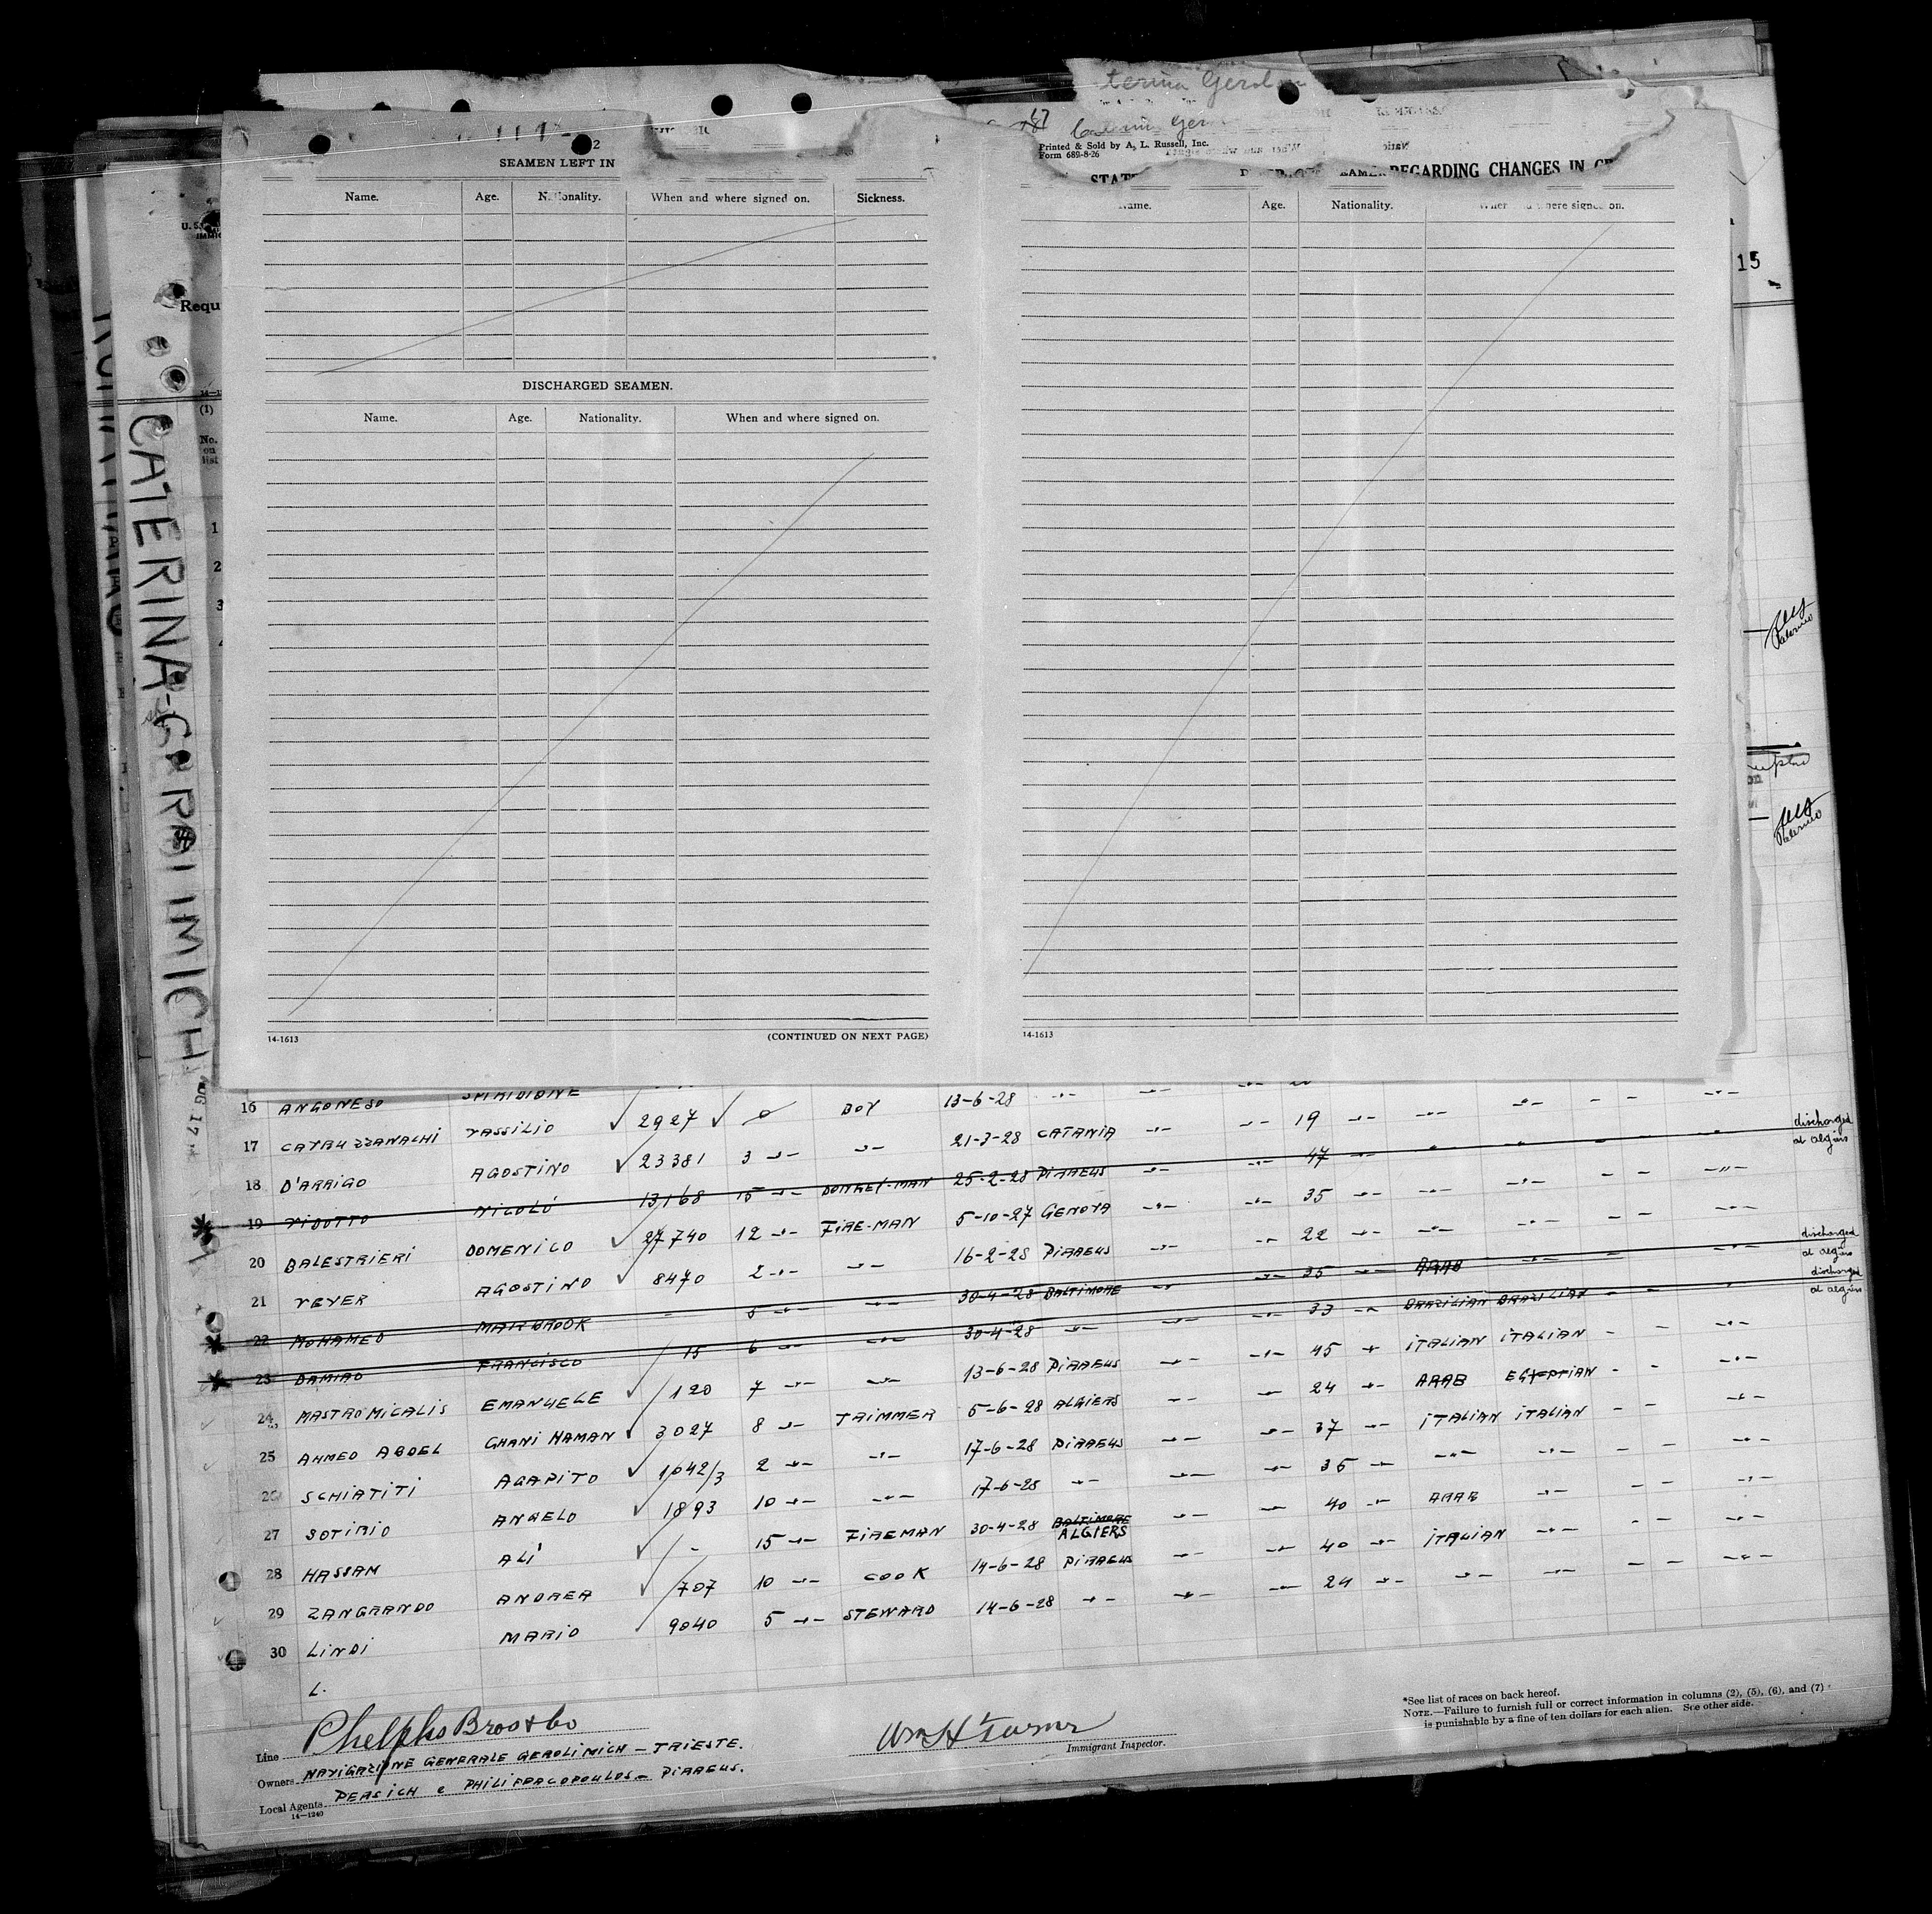 terina Gerol
2
SEAMEN LEFT IN
Name. Age. Nationality. When and where signed on. Sickness.
DISCHARGED SEAMEN.
Name. Age. Nationality. When and where signed on.
14-1613 (CONTINUED ON NEXT PAGE)
Printed & Sold by A. L. Russell, Inc.
Form 689-8-26
REGARDING CHANGES IN
Age. Nationality. where signed on.
14-1613
15
Requ
(1)
No.
on
list
1
2
3
CATERINA-GEROLIMICH
Palermo
Palermo
16 ANGONESO SPIRIDIONE
17 CATRUZZANACHI VASSILIO 2927 0 BOY 13-6-28 -"-
18 D'ARRIGO AGOSTINO 23381 3 -"- -"- 21-3-28 CATANIA -"- -"- 19 -"- -"- -"- - - -"-
19 VIDOTTO NICOLÓ 13168 15 -"- DONKEY-MAN 25-2-28 PIRAEUS -"- -"- 47 -"- discharged at Algiers
20 BALESTRIERI DOMENICO 27740 12 -"- FIRE-MAN 5-10-27 GENOVA -"- -"- 35 -"- -"- -"- - - -"-
21 VEYER AGOSTINO 8470 2 -"- -"- 16-2-28 PIRAEUS -"- -"- 22 -"- -"- -"- - - -"-
22 MOHAMED MARBROOK - 5 -"- -"- 30-4-28 BALTIMORE -"- -"- 35 -"- ARAB -"- - -"- discharged at Algiers
23 DAMIAO FRANCISCO 15 6 -"- -"- 30-4-28 -"- -"- -"- 33 -"- BRAZILIAN BRAZILIAN - - discharged at Algiers
24 MASTROMICALIS EMANUELE 120 7 -"- -"- 13-6-28 PIRAEUS -"- -"- 45 -"- ITALIAN ITALIAN - - -"-
25 AHMED ABDEL GHANI HAMAN 3027 8 -"- TRIMMER 5-6-28 ALGIERS -"- - 24 -"- ARAB EGYPTIAN - -
26 SCHIATITI AGAPITO 1042/3 2 -"- -"- 17-6-28 PIRAEUS -"- -"- 37 -"- ITALIAN ITALIAN - - -"-
27 SOTIRIO ANGELO 1893 10 -"- -"- 17-6-28 -"- -"- -"- 35 -"- -"- -"- - - -"-
28 HASSAM ALÌ - 15 -"- FIREMAN 30-4-28 BALTIMORE ALGIERS -"- - 40 -"- ARAB -"- - - -"-
29 ZANGRANDO ANDREA 707 10 -"- COOK 14-6-28 PIRAEUS -"- -"- 40 -"- ITALIAN -"- - - -"-
30 LINDI MARIO 9040 5 -"- STEWARD 14-6-28 -"- -"- -"- 24 -"- -"- -"- - - -"-
L.
Line Phelphs Bros & Co
Owners NAVIGAZIONE GENERALE GEROLIMICH - TRIESTE.
Local Agents PERSICH e PHILIPPACOPOULOS - PIRAEUS.
14-1240
Wm H Turner
Immigrant Inspector.
*See list of races on back hereof.
NOTE.—Failure to furnish full or correct information in columns (2), (5), (6), and (7)
is punishable by a fine of ten dollars for each alien. See other side.